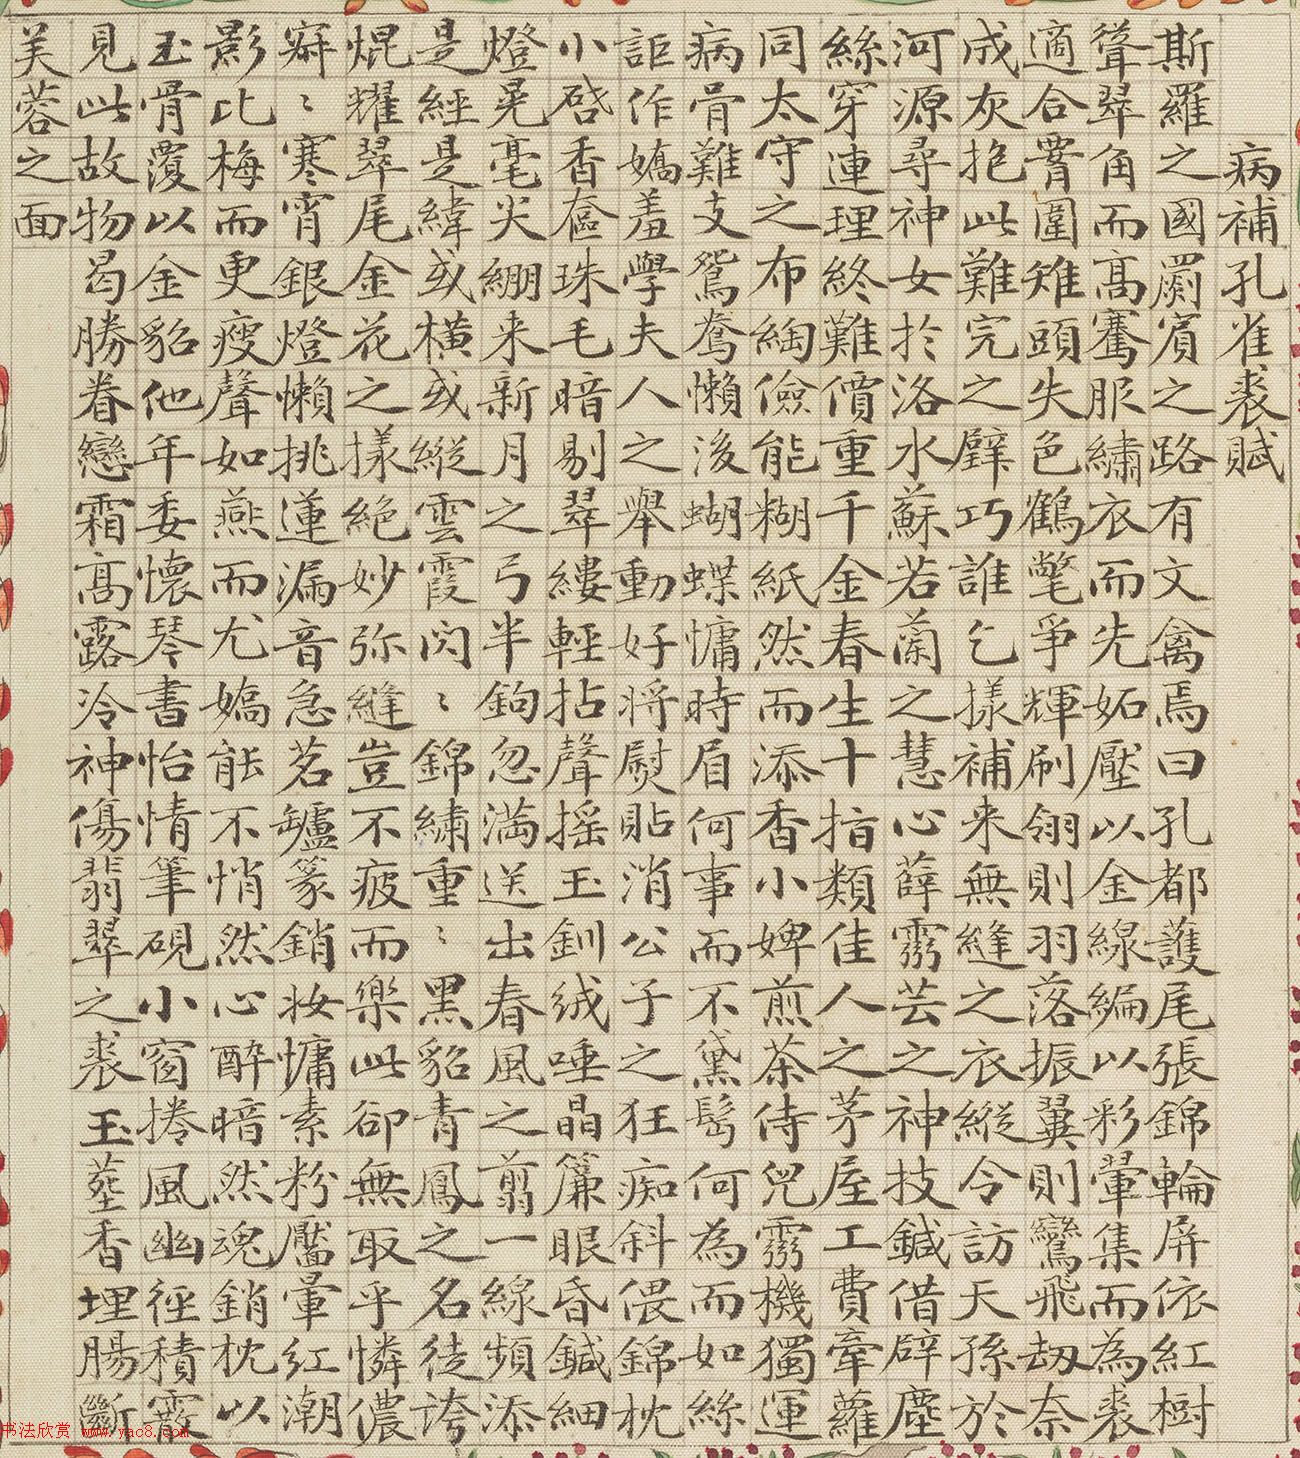 病補孔雀裘賦
斯羅之國罽賓之路有文禽焉曰孔都護尾張錦輪屏依紅樹
聳翠角而高騫服繡衣而先妬壓以金線編以彩翬集而為裘
適合臀圍雉頭失色鶴氅爭輝刷翎則羽落振翼則鸞飛刼奈
成灰抱此難完之躃巧誰乞樣補来無縫之衣縱令訪天孫於
河源尋神女於洛水蘇若蘭之慧心薛靈芸之神技鍼借辟塵
絲穿連理終難價重千金春生十指類佳人之茅屋工費牽蘿
同太守之布綯儉能糊紙然而添香小婢煎茶侍兒靈機獨運
病骨難支鴛鴦懶後蝴蝶慵時眉何事而不黛髩何為而如絲
詎作嬌羞學夫人之舉動好將熨貼消公子之狂痴斜偎錦枕
小啓香奩珠毛暗剔翠縷輕拈聲摇玉釧絨唾晶簾眼昏鍼細
燈晃毫尖綳来新月之弓半鉤忽滿送出春風之剪一線頻添
是經是緯或橫或縱雲霞閃〻錦繡重〻黑貂青鳳之名徒誇
焜耀翠尾金花之樣絕妙弥縫豈不疲而樂此卻無取乎憐儂
寂〻寒宵銀燈懶挑蓮漏音急茗罏篆銷妝慵素粉靨暈紅潮
影比梅而更瘦聲如燕而尤嬌能不悄然心醉暗然魂銷枕以
玉骨覆以金貂他年委懷琴書怡情筆硯小窗捲風幽徑積霰
見此故物曷勝眷戀霜高露冷神傷翡翠之裘玉葬香埋腸斷
芙蓉之面
书法欣赏 www.yac8.com